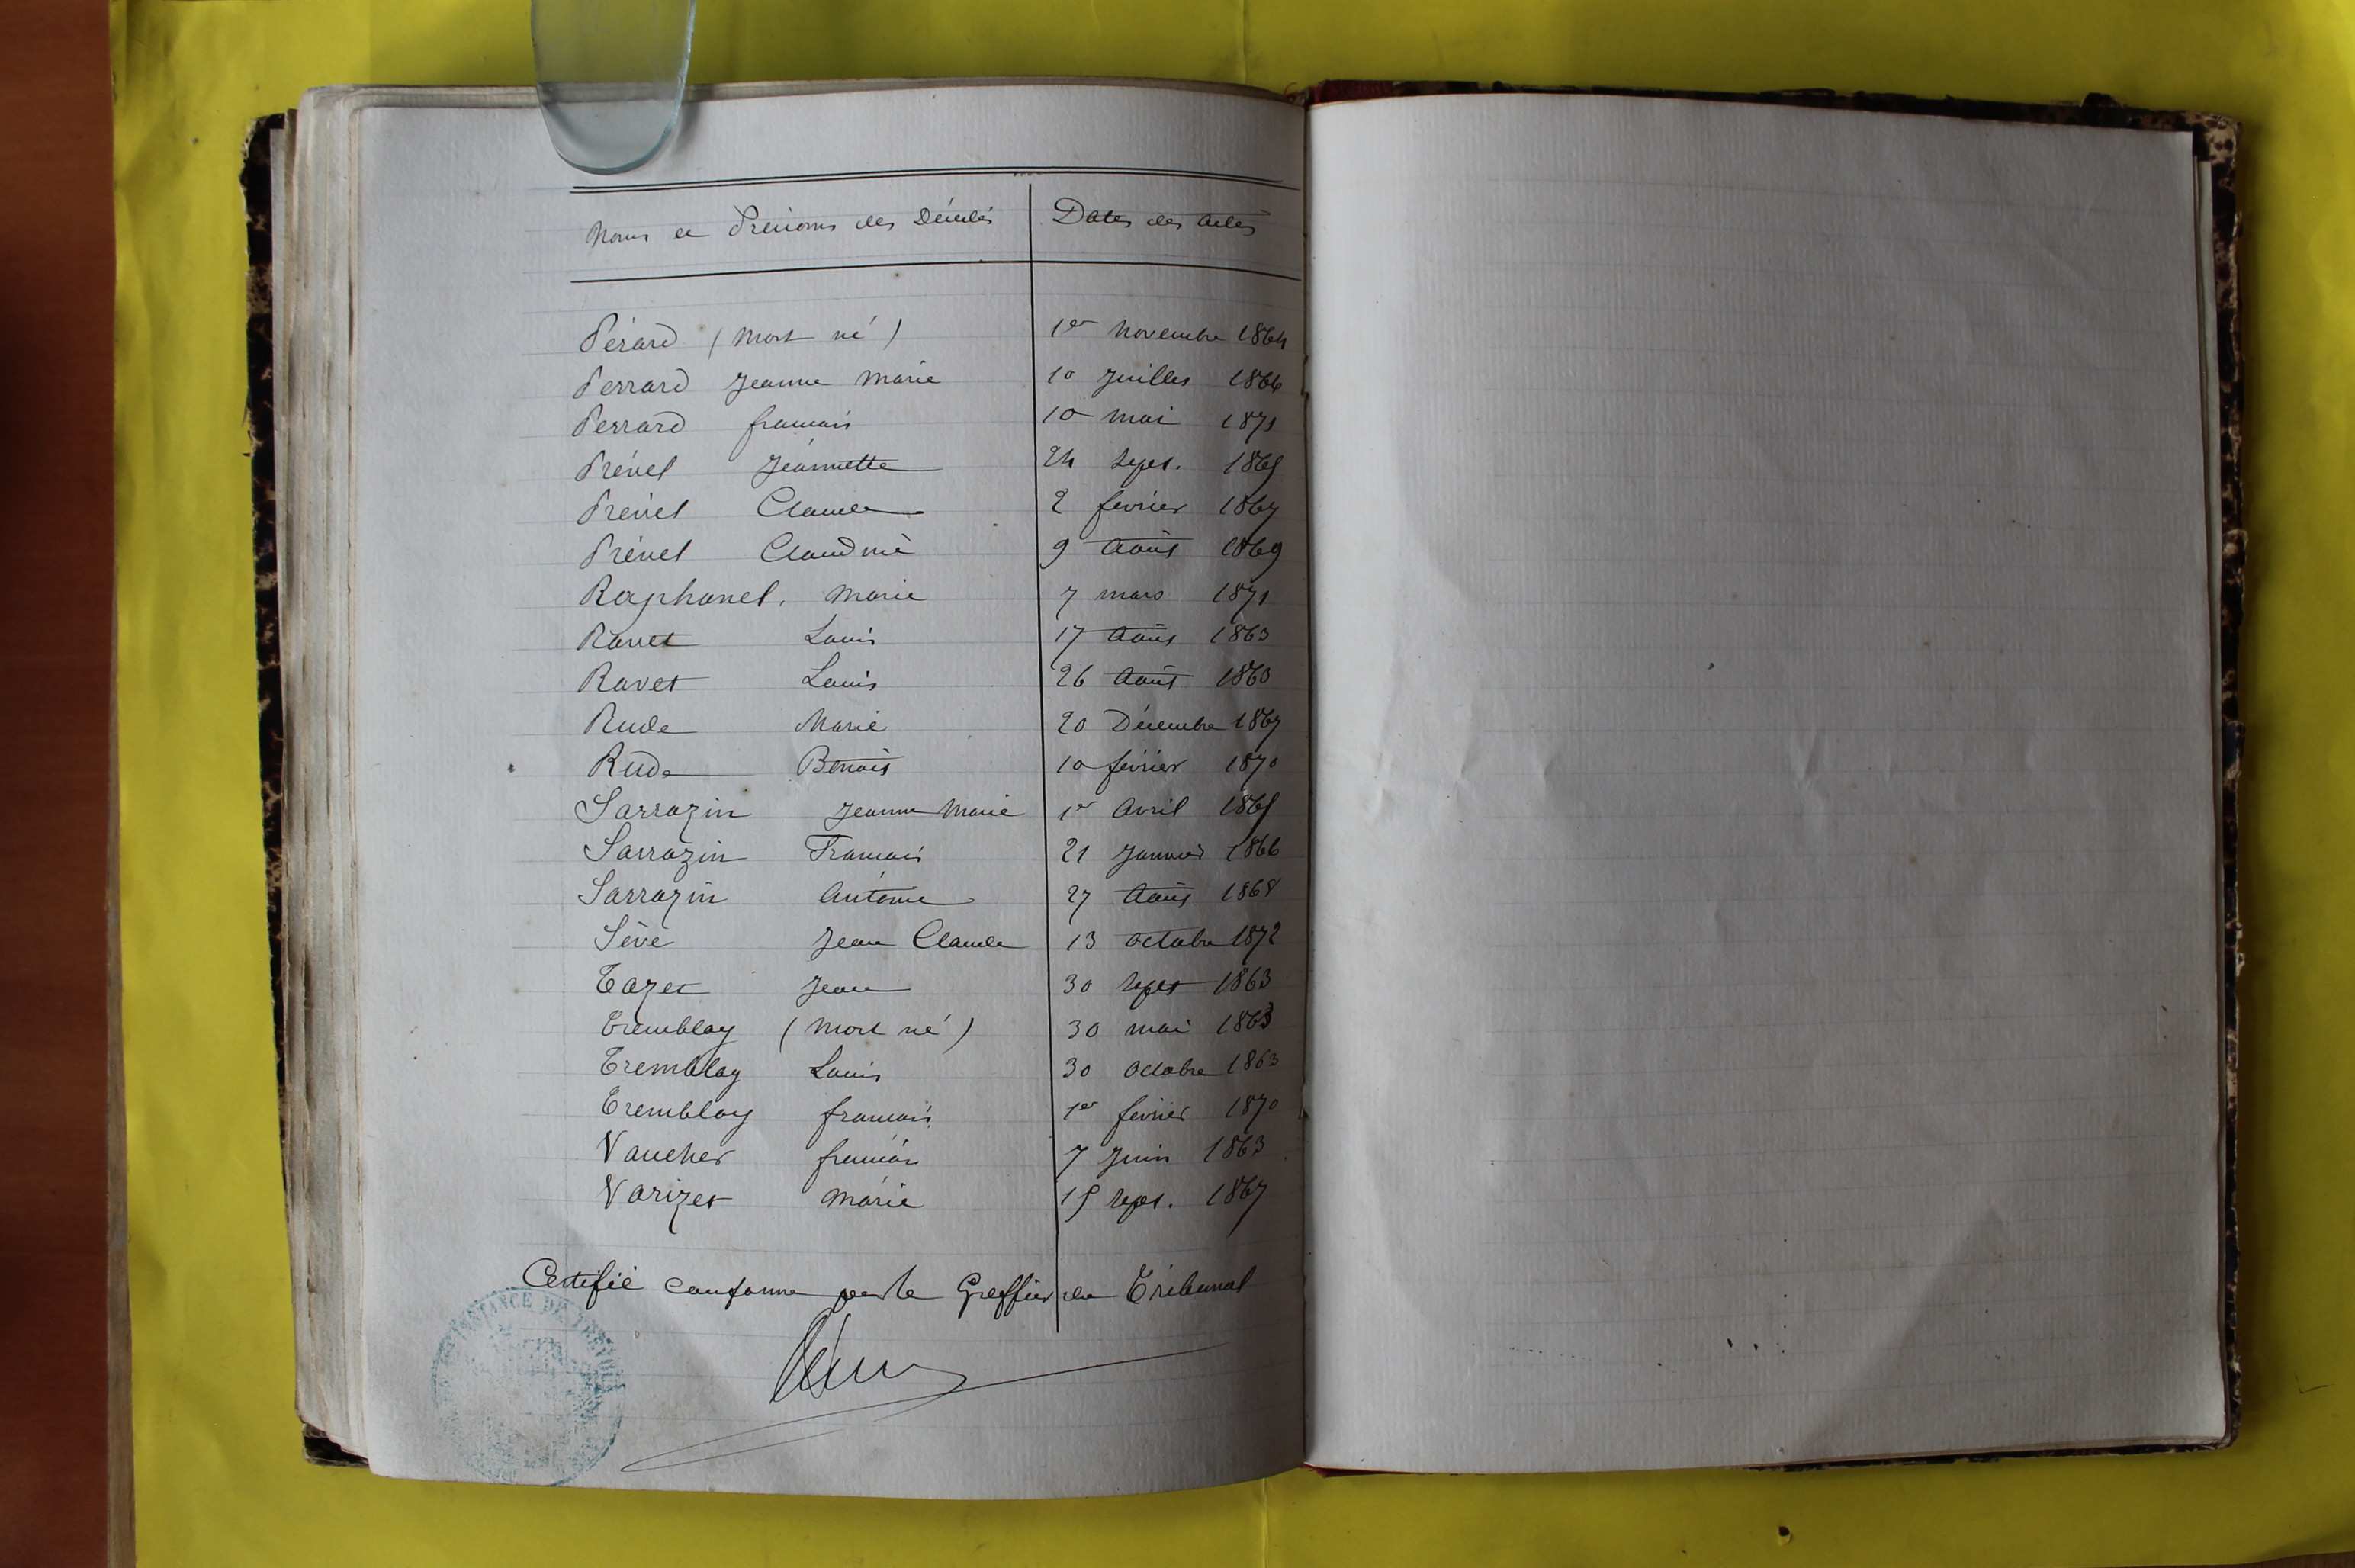 Noms et Prénoms des Décédés Dates des actes
Pérard (mort né) 1er novembre 1864
Perrard Jeanne Marie 10 Juillet 1866
Perrard francois 10 mai 1871
Prével Jeannette 24 Sept. 1865
Prével Claude 2 fevrier 1867
Prével Claudine 9 Août 1869
Raphanel. Marie 7 mars 1871
Ravet Louis 17 Août 1863
Ravet Louis 26 Août 1863
Rude Marie 20 Décembre 1867
Rude Benoit 10 février 1870
Sarrazin Jeanne Marie 1er Avril 1865
Sarrazin Francois 21 Janvier 1866
Sarrazin Antoine 27 Août 1868
Sève Jean Claude 13 octobre 1872
Tazet Jean 30 Sept 1863
Tremblay (mort né) 30 mai 1863
Tremblay Louis 30 octobre 1863
Tremblay francois 1er fevrier 1870
Vaucher francois 7 Juin 1863
Varizet Marie 15 Sept. 1867
Certifié conforme par le Greffier du Tribunal
INSTANCE DE TRÉVOUX